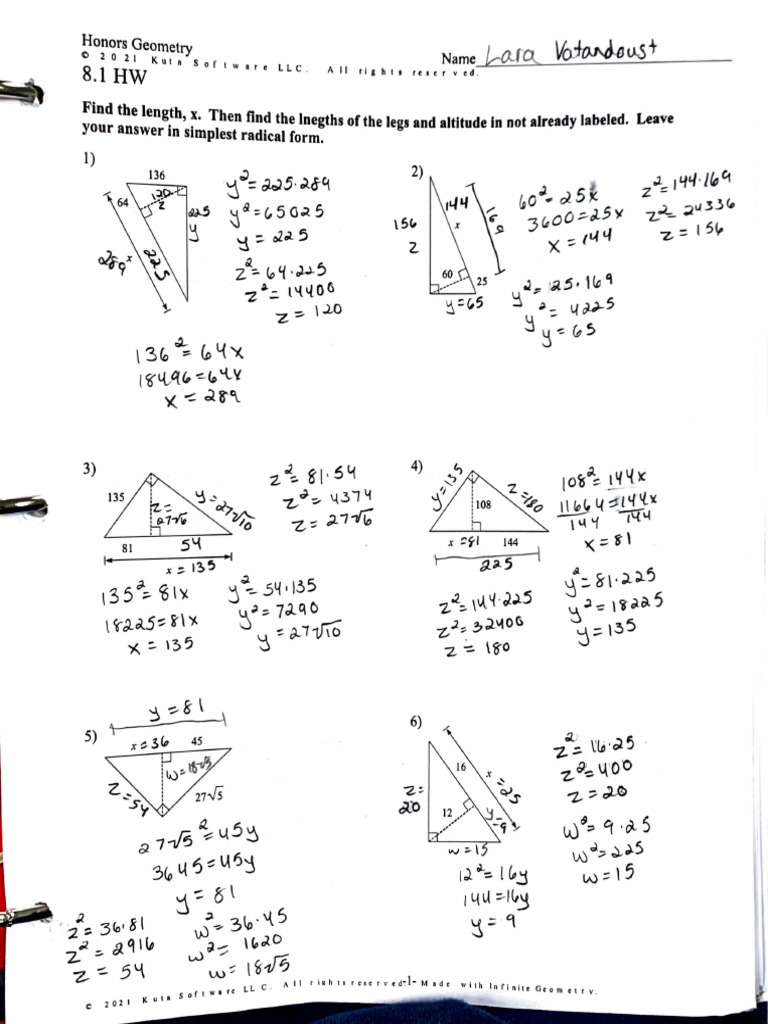 Honors Geometry
Name Lara Vatandoust
© 2021 Kuta Software LLC. All rights reserved.
8.1 HW
Find the length, x. Then find the lnegths of the legs and altitude in not already labeled. Leave
your answer in simplest radical form.
1)
136
64
120
z
225
y
289
x
225
y²=225·289
y²=65025
y = 225
z²=64·225
z²=14400
z = 120
136²=64x
18496=64x
x = 289
2)
156
z
144
x
169
60
25
y=65
60²=25x
3600=25x
x = 144
z²=144·169
z²=24336
z = 156
y²=25·169
y²=4225
y=65
3)
135
z=
27√6
y=27√10
81
54
x = 135
z²=81·54
z²=4374
z = 27√6
135²=81x
18225=81x
x = 135
y²=54·135
y²=7290
y=27√10
4)
y=135
z=180
108
x =81
144
225
108²=144x
11664=144x
144 144
x=81
z²=144·225
z²=32400
z = 180
y²=81·225
y²=18225
y=135
5)
y=81
x=36
45
w=18√5
z=54
27√5
27√5²=45y
3645=45y
y = 81
z²=36·81
z²=2916
z = 54
w²=36·45
w²=1620
w=18√5
6)
16
x=25
z=
20
12
y=9
w=15
z²=16·25
z²=400
z=20
w²=9·25
w²=225
w=15
12²=16y
144=16y
y=9
© 2021 Kuta Software LLC. All rights reserved -1- Made with Infinite Geometry.